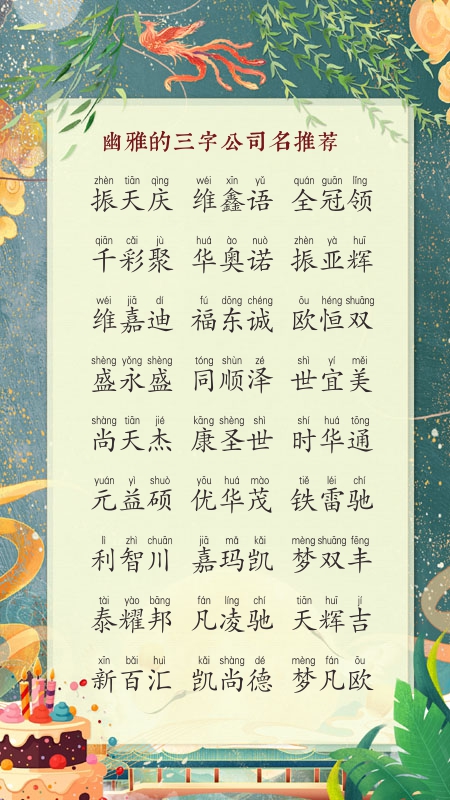 幽雅的三字公司名推荐
zhèn tiān qìng wéi xīn yǔ quán guān lǐng
振天庆 维鑫语 全冠领
qiān cǎi jù huá ào nuò zhèn yà huī
千彩聚 华奥诺 振亚辉
wéi jiā dí fú dōng chéng ōu héng shuāng
维嘉迪 福东诚 欧恒双
shèng yǒng shèng tóng shùn zé shì yí měi
盛永盛 同顺泽 世宜美
shàng tiān jié kāng shèng shì shí huá tōng
尚天杰 康圣世 时华通
yuán yì shuò yōu huá mào tiě léi chí
元益硕 优华茂 铁雷驰
lì zhì chuān jiā mǎ kǎi mèng shuāng fēng
利智川 嘉玛凯 梦双丰
tài yào bāng fán líng chí tiān huī jí
泰耀邦 凡凌驰 天辉吉
xīn bǎi huì kǎi shàng dé mèng fán ōu
新百汇 凯尚德 梦凡欧